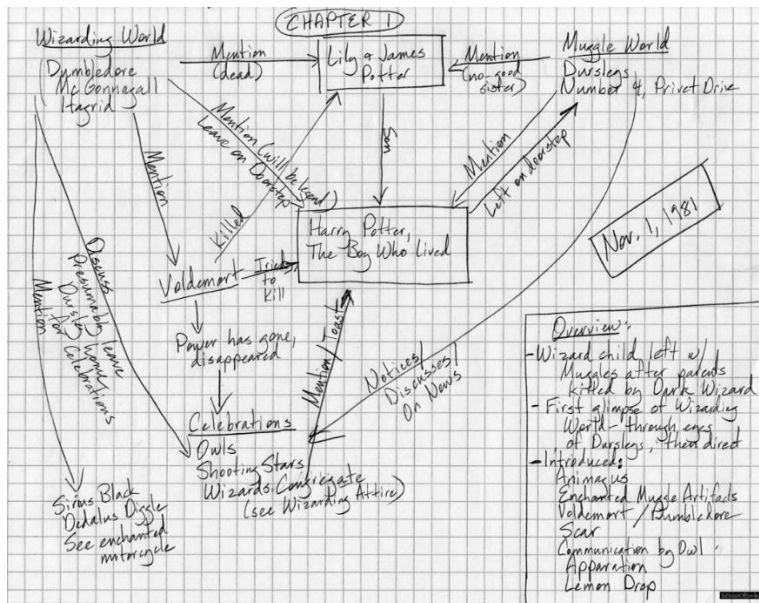 CHAPTER 1
Wizarding World
Dumbledore
McGonnagall
Hagrid
Mention
(dead)
Lily & James
Potter
Mention
(no-good
sister)
Muggle World
Dursleys
Number 4, Privet Drive
Mention
Mention (will be legend)
Leave on Doorstep
Killed
Son
Mention
Left on doorstep
Nov. 1, 1981
Harry Potter,
The Boy Who Lived
Voldemort
Tried
to
Kill
Discuss
Presumably leave
Dursley home
for Celebrations
Mention
Power has gone,
disappeared
Mention/Toast
Notices/
Discusses/
On News
Celebrations
Owls
Shooting Stars
Wizards Congregate
(see Wizarding Attire)
Sirius Black
Dedalus Diggle
See enchanted
motorcycle
Overview:
- Wizard child left w/
Muggles after parents
killed by Dark Wizard
- First glimpse of Wizarding
World - through eyes
of Dursleys, then direct
- Introduced:
Animagus
Enchanted Muggle Artifacts
Voldemort/Dumbledore
Scar
Communication by Owl
Apparation
Lemon Drop